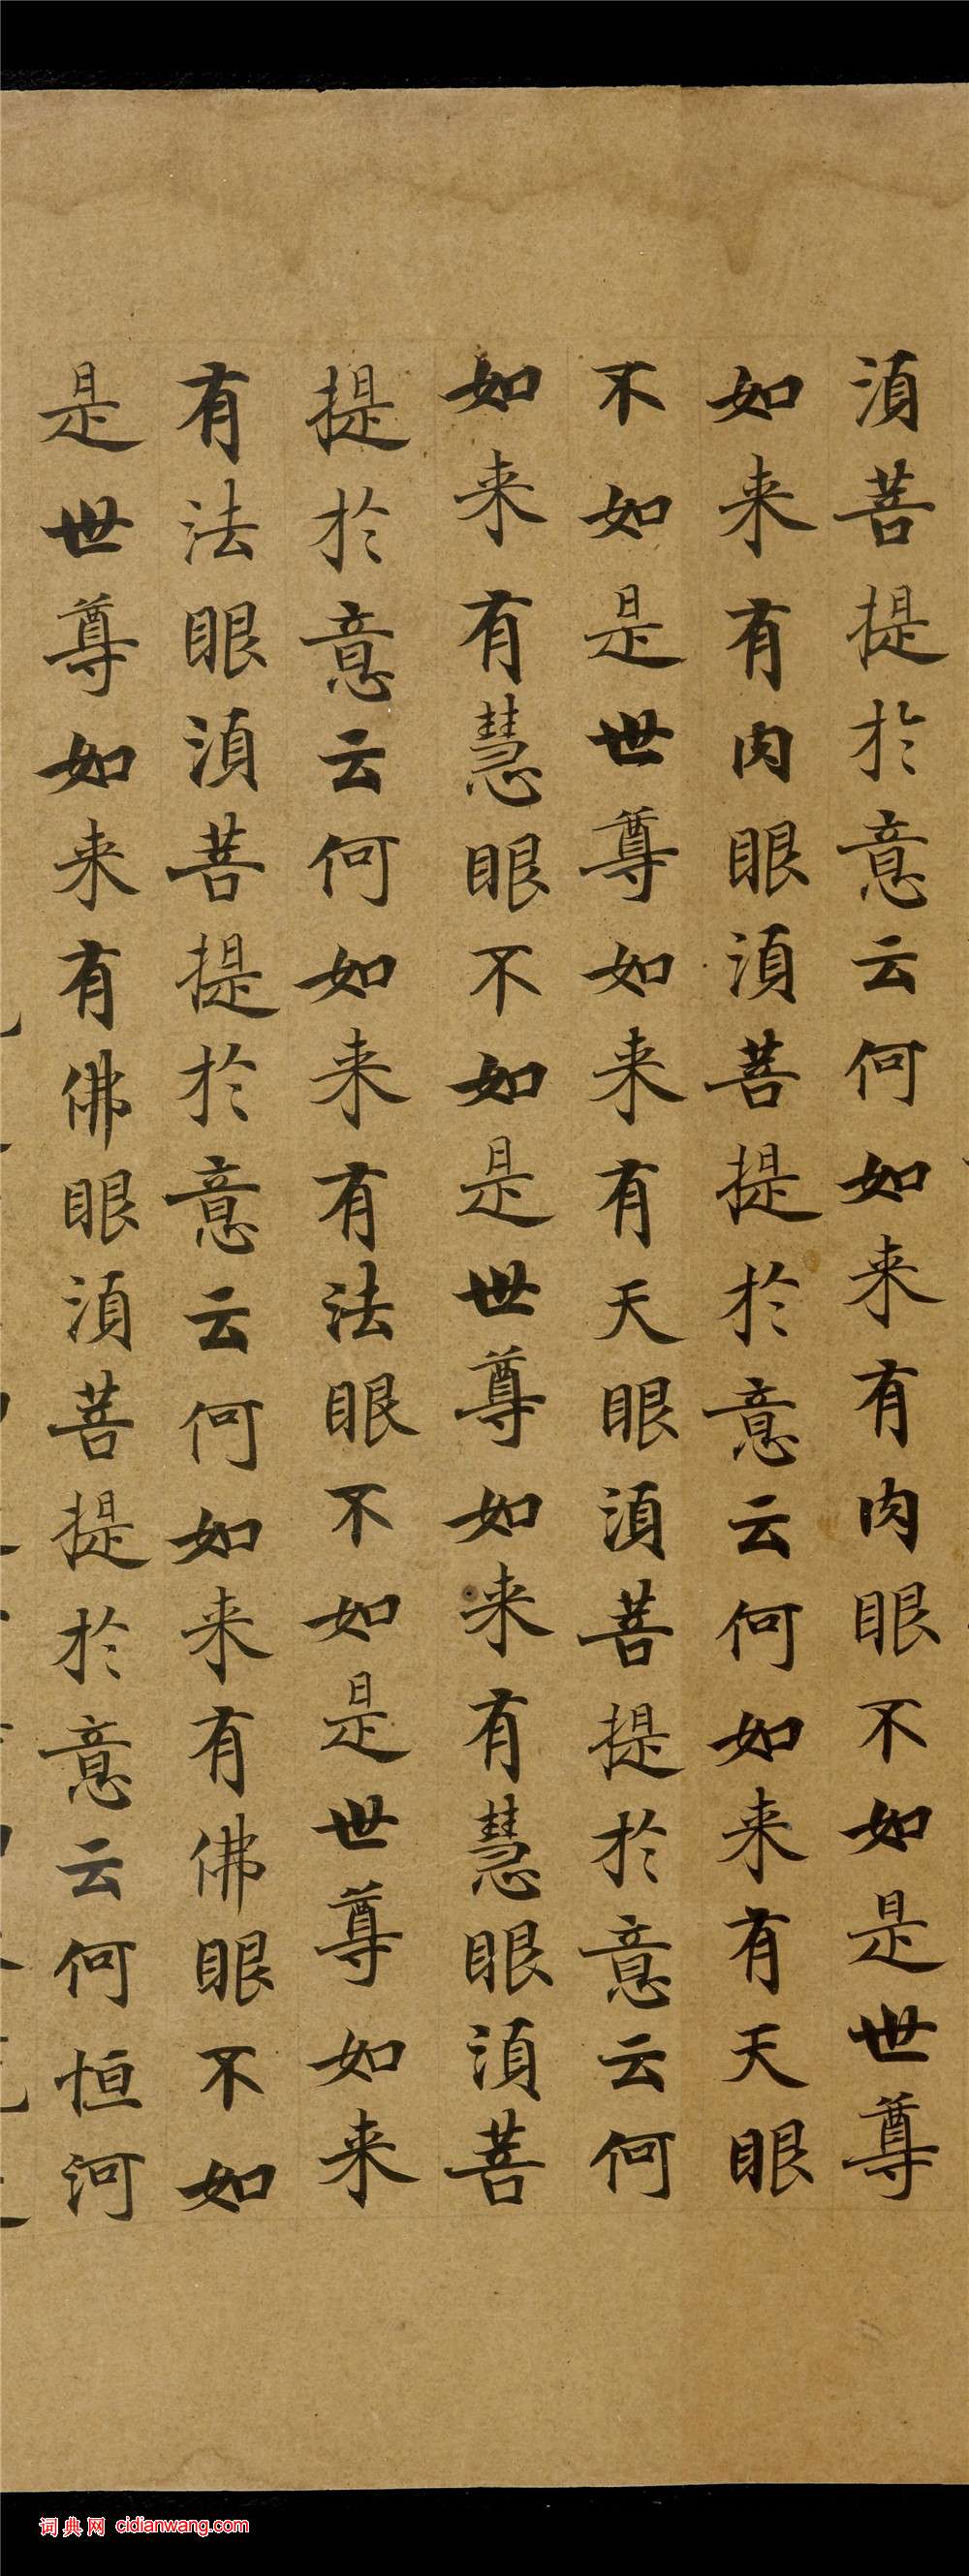 湏菩提於意云何如来有肉眼不如是世尊
如来有肉眼湏菩提於意云何如来有天眼
不如是世尊如来有天眼湏菩提於意云何
如来有慧眼不如是世尊如来有慧眼湏菩
提於意云何如来有法眼不如是世尊如来
有法眼湏菩提於意云何如来有佛眼不如
是世尊如来有佛眼湏菩提於意云何恒河
词典网 cidianwang.com